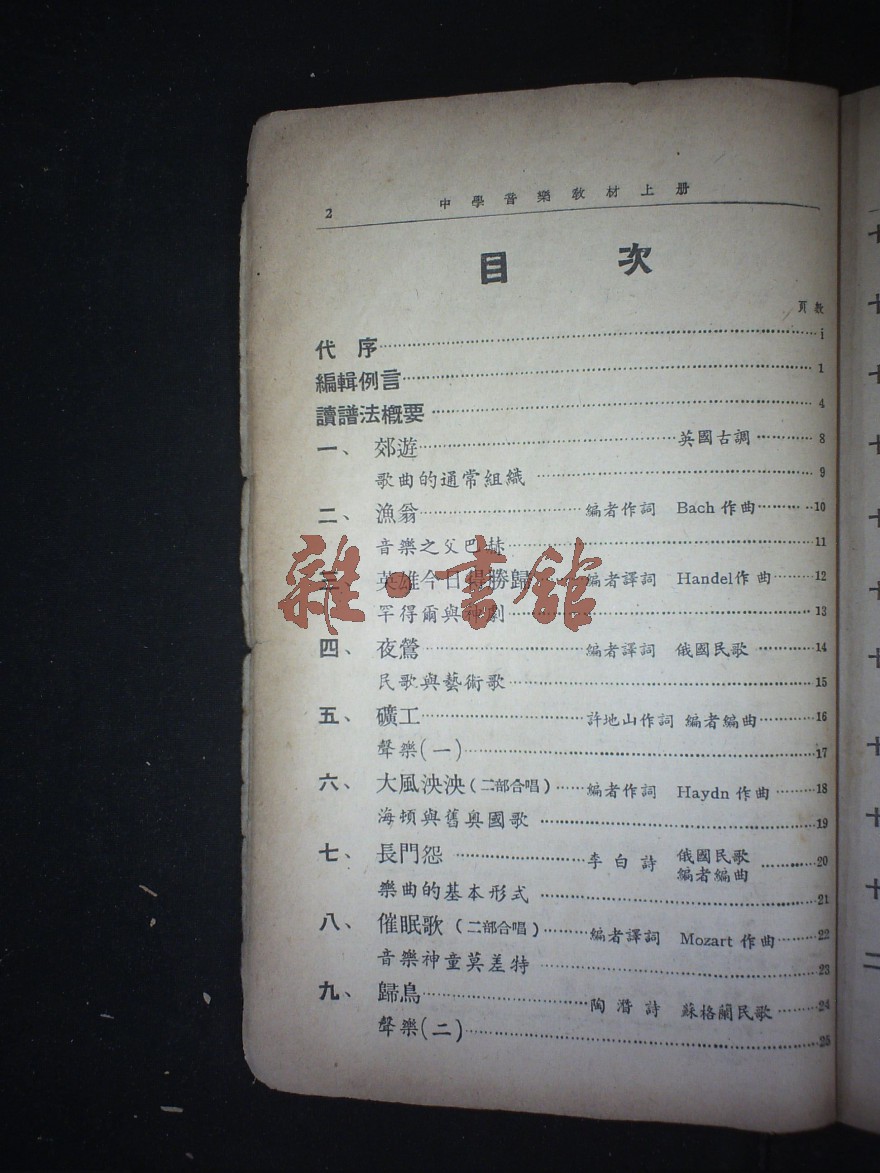 2 中學音樂教材上册
目次
頁數
代序 i
編輯例言 1
讀譜法概要 4
一、 郊遊 英國古調 8
歌曲的通常組織 9
二、 漁翁 編者作詞 Bach 作曲 10
音樂之父巴赫 11
三、 英雄今日得勝歸 編者譯詞 Handel作曲 12
罕得爾與神劇 13
四、 夜鶯 編者譯詞 俄國民歌 14
民歌與藝術歌 15
五、 礦工 許地山作詞 編者編曲 16
聲樂(一) 17
六、 大風泱泱(二部合唱) 編者作詞 Haydn 作曲 18
海頓與舊奧國歌 19
七、 長門怨 李白詩 俄國民歌 編者編曲 20
樂曲的基本形式 21
八、 催眠歌(二部合唱) 編者譯詞 Mozart 作曲 22
音樂神童莫差特 23
九、 歸鳥 陶潛詩 蘇格蘭民歌 24
聲樂(二) 25
雜·書館